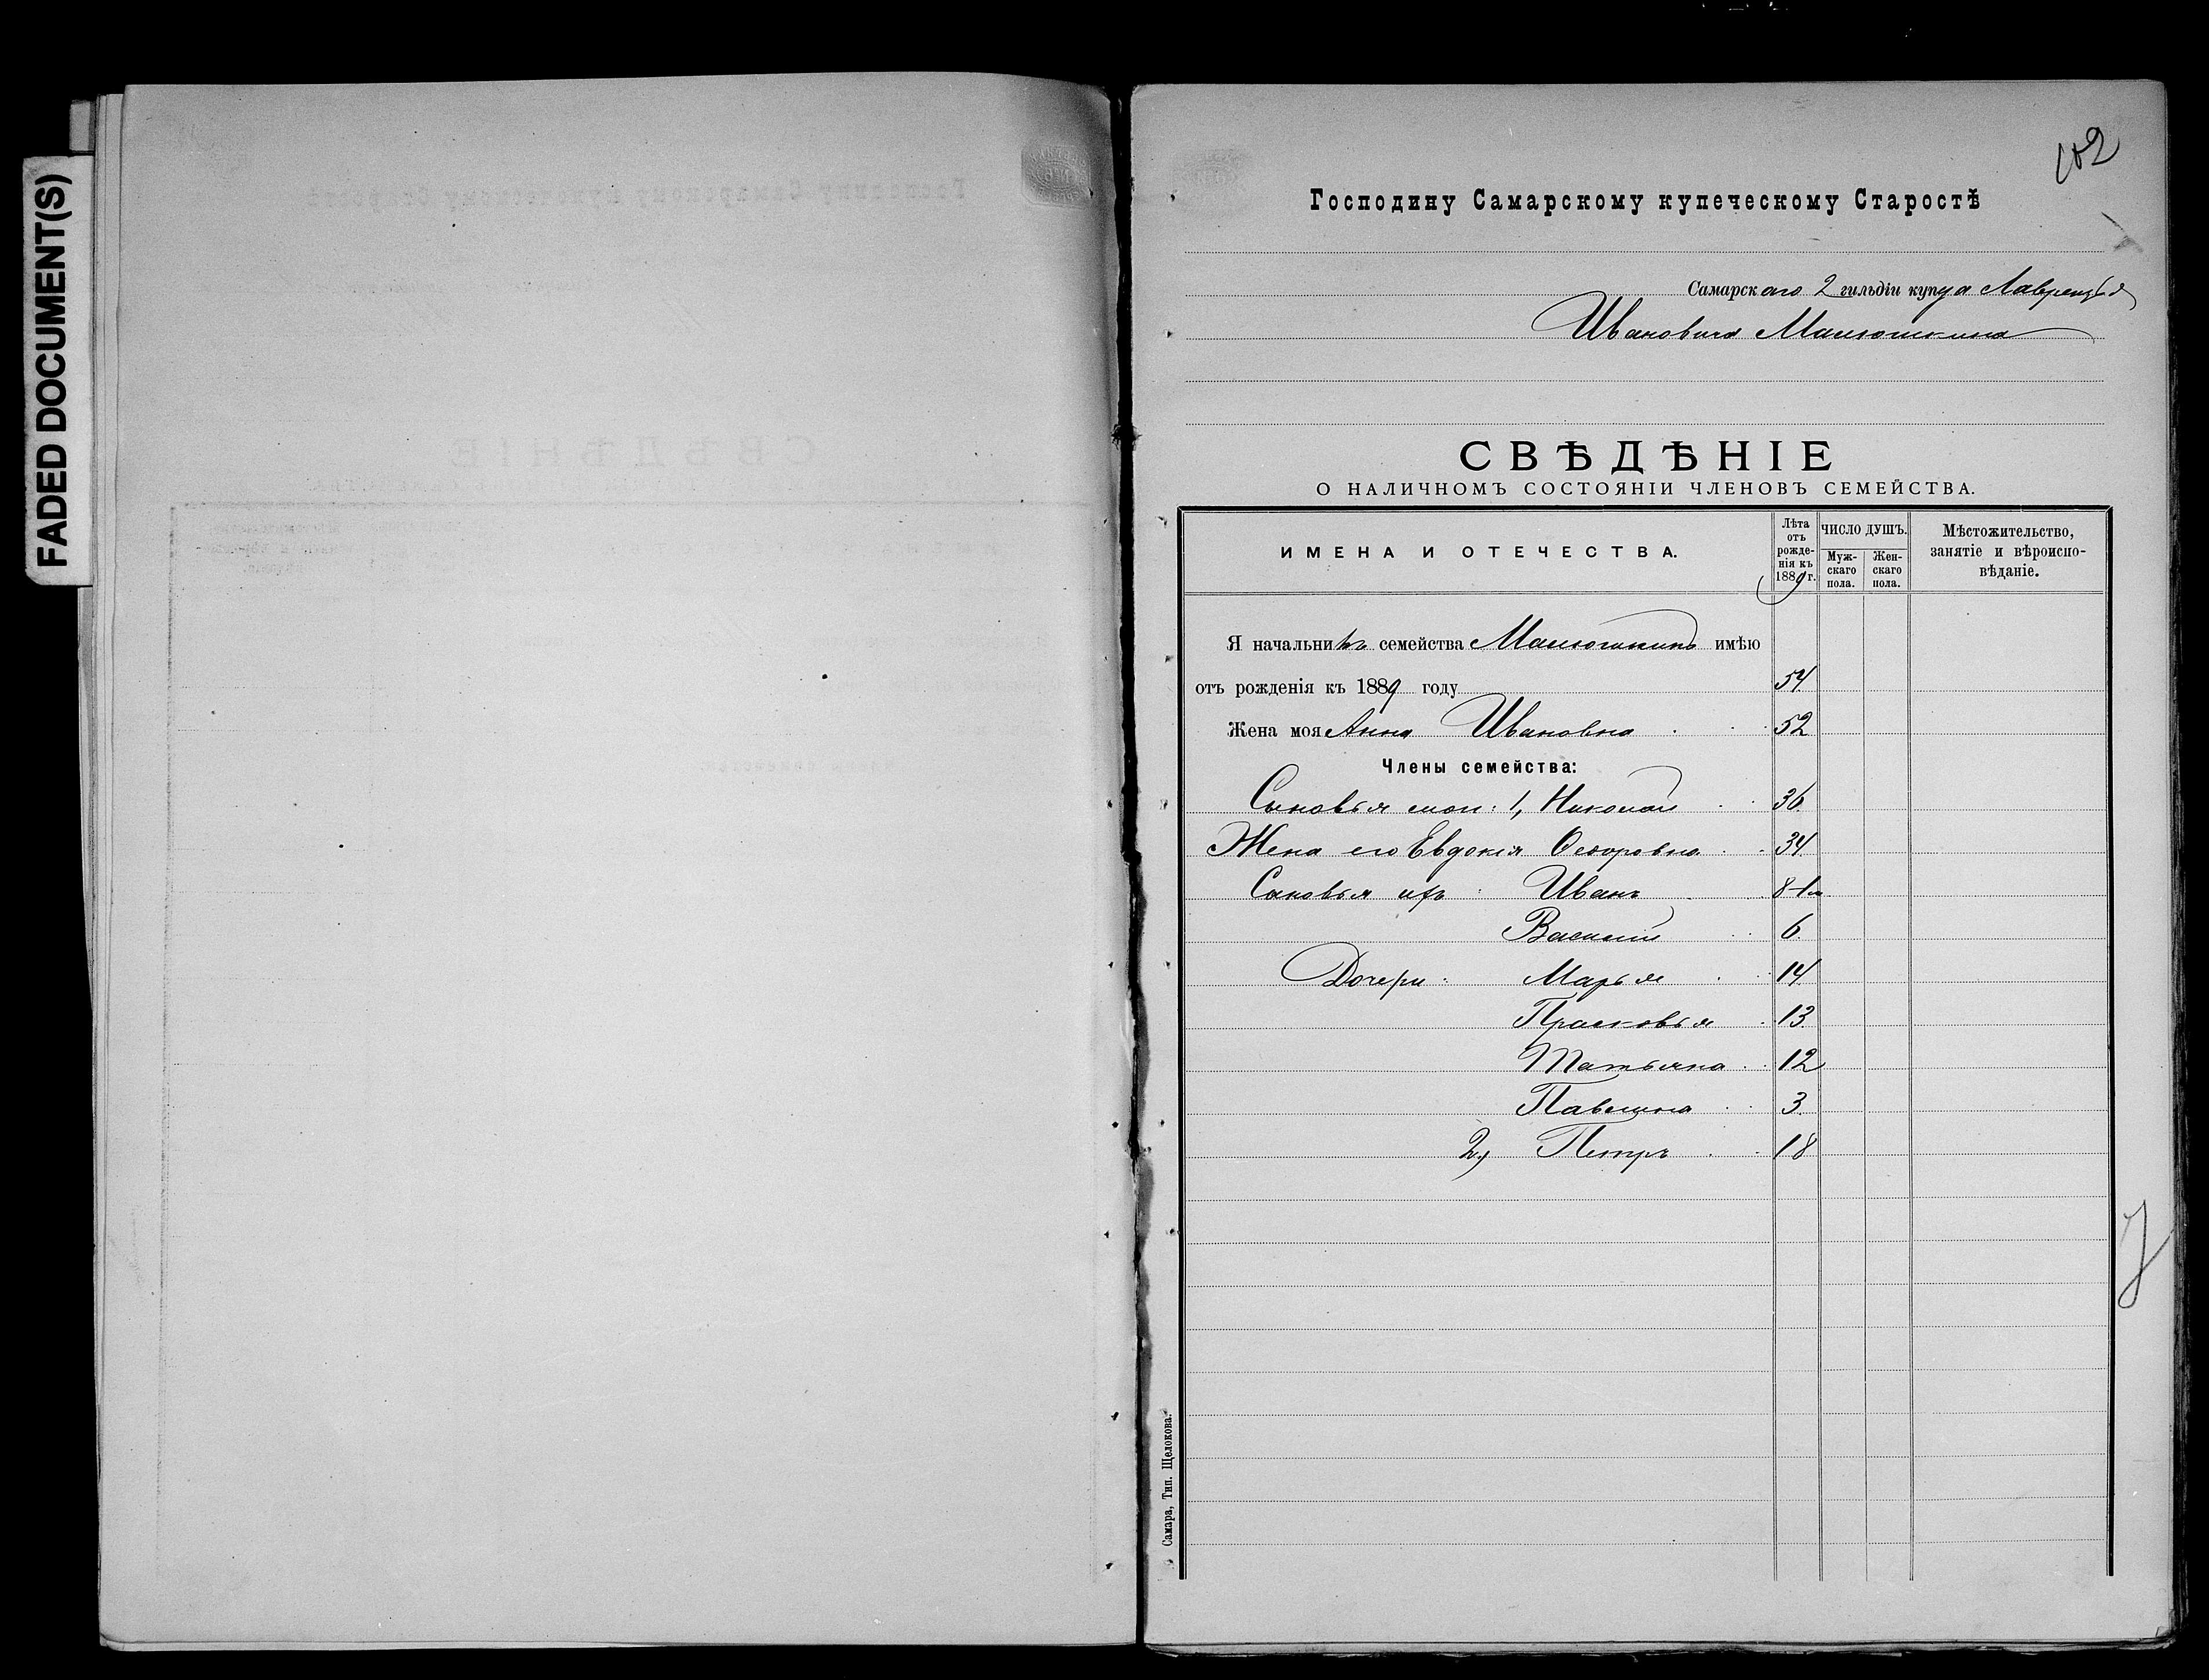 FADED DOCUMENT(S)
102
Господину Самарскому купеческому Старостѣ
Самарскаго 2 гильдіи купца Лаврентья
Ивановича Манюшкина
СВѢДѢНІЕ
О НАЛИЧНОМЪ СОСТОЯНІИ ЧЛЕНОВЪ СЕМЕЙСТВА.
ИМЕНА И ОТЕЧЕСТВА.
Лѣта отъ рожденія къ 1889 г.
ЧИСЛО ДУШЪ.
Мужскаго пола.
Женскаго пола.
Мѣстожительство,
занятіе и вѣроиспо-
вѣданіе.
Я начальникъ семейства Манюшкинъ имѣю
отъ рожденія къ 1889 году 54
Жена моя Анна Ивановна 52
Члены семейства:
Сыновья мои: 1, Николай 36
Жена его Евдокія Ѳедоровна 34
Сыновья ихъ: Иванъ 8
Василій 6
Дочери: Марья 14
Прасковья 13
Татьяна 12
Павлина 3
2, Петръ 18
Самара, Тип. Щелокова.